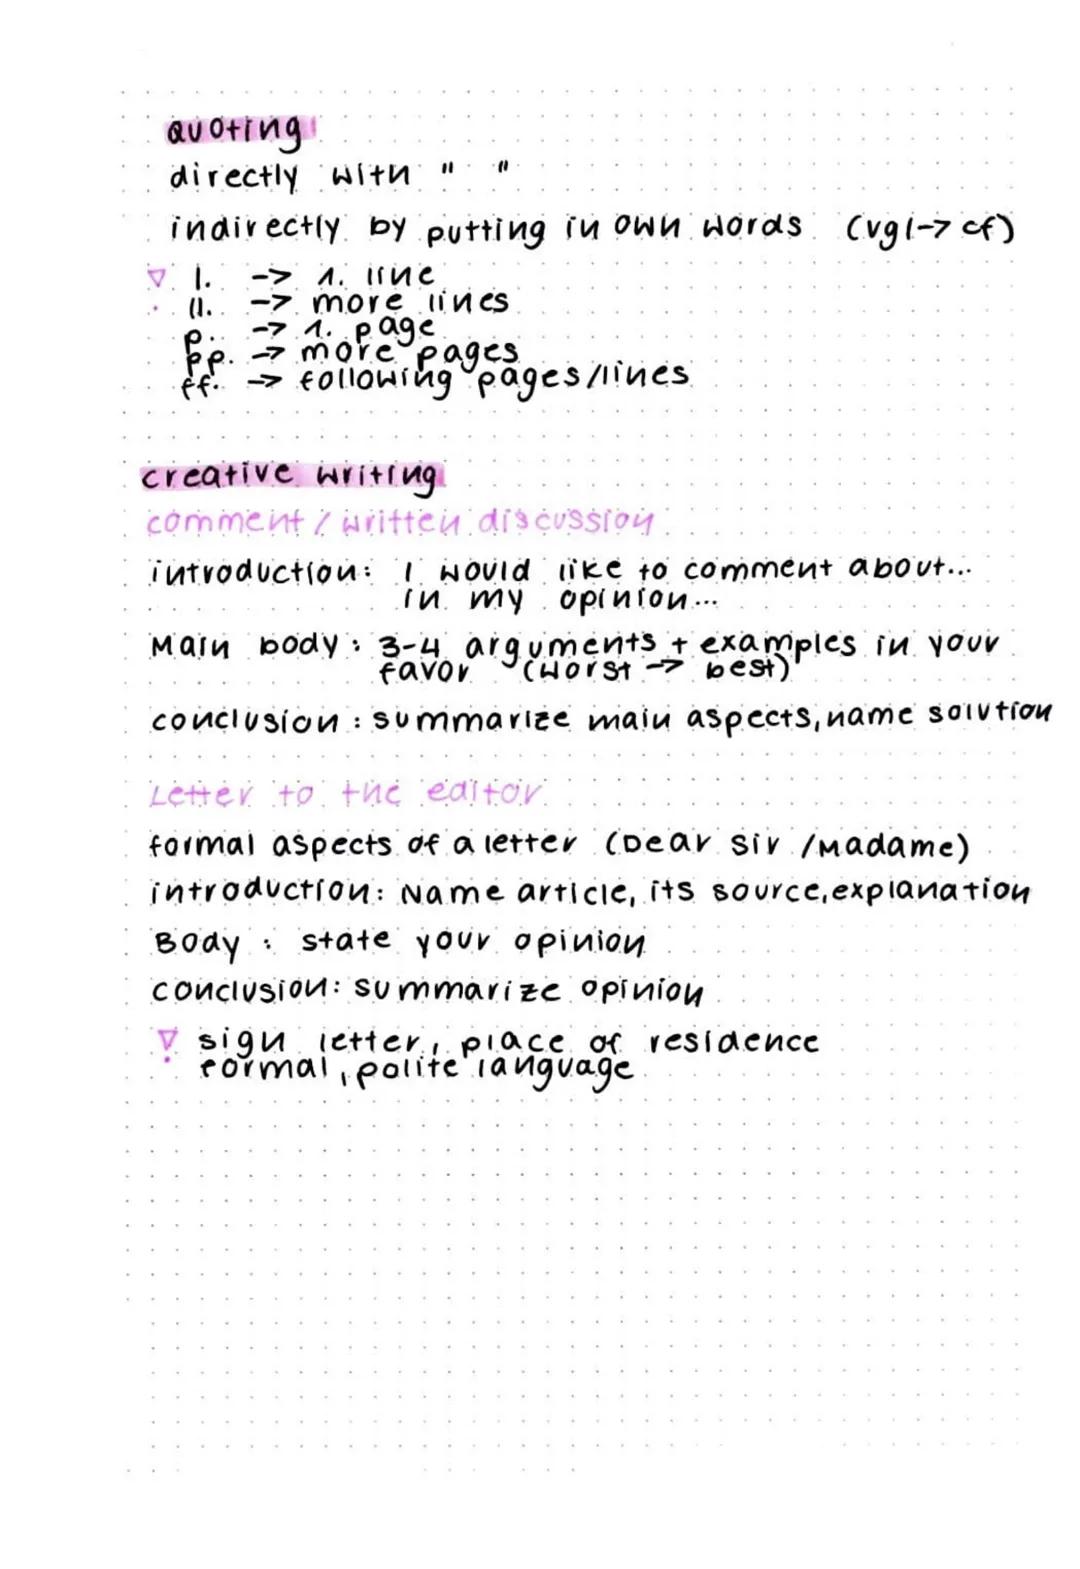 quoting
directly with " "
indirectly by putting in own words (vgl-> cf)
! l. -> 1. line
ll. -> more lines
p. -> 1. page
pp. -> more pages
ff. -> following pages/lines
creative writing
comment / written discussion
introduction: I would like to comment about...
in my opinion...
Main body: 3-4 arguments + examples in your
favor (worst -> best)
conclusion: summarize main aspects, name solution
Letter to the editor
formal aspects of a letter (Dear Sir /Madame)
introduction: Name article, its source, explanation
Body: state your opinion
conclusion: summarize opinion
! sign letter, place of residence
formal, polite language